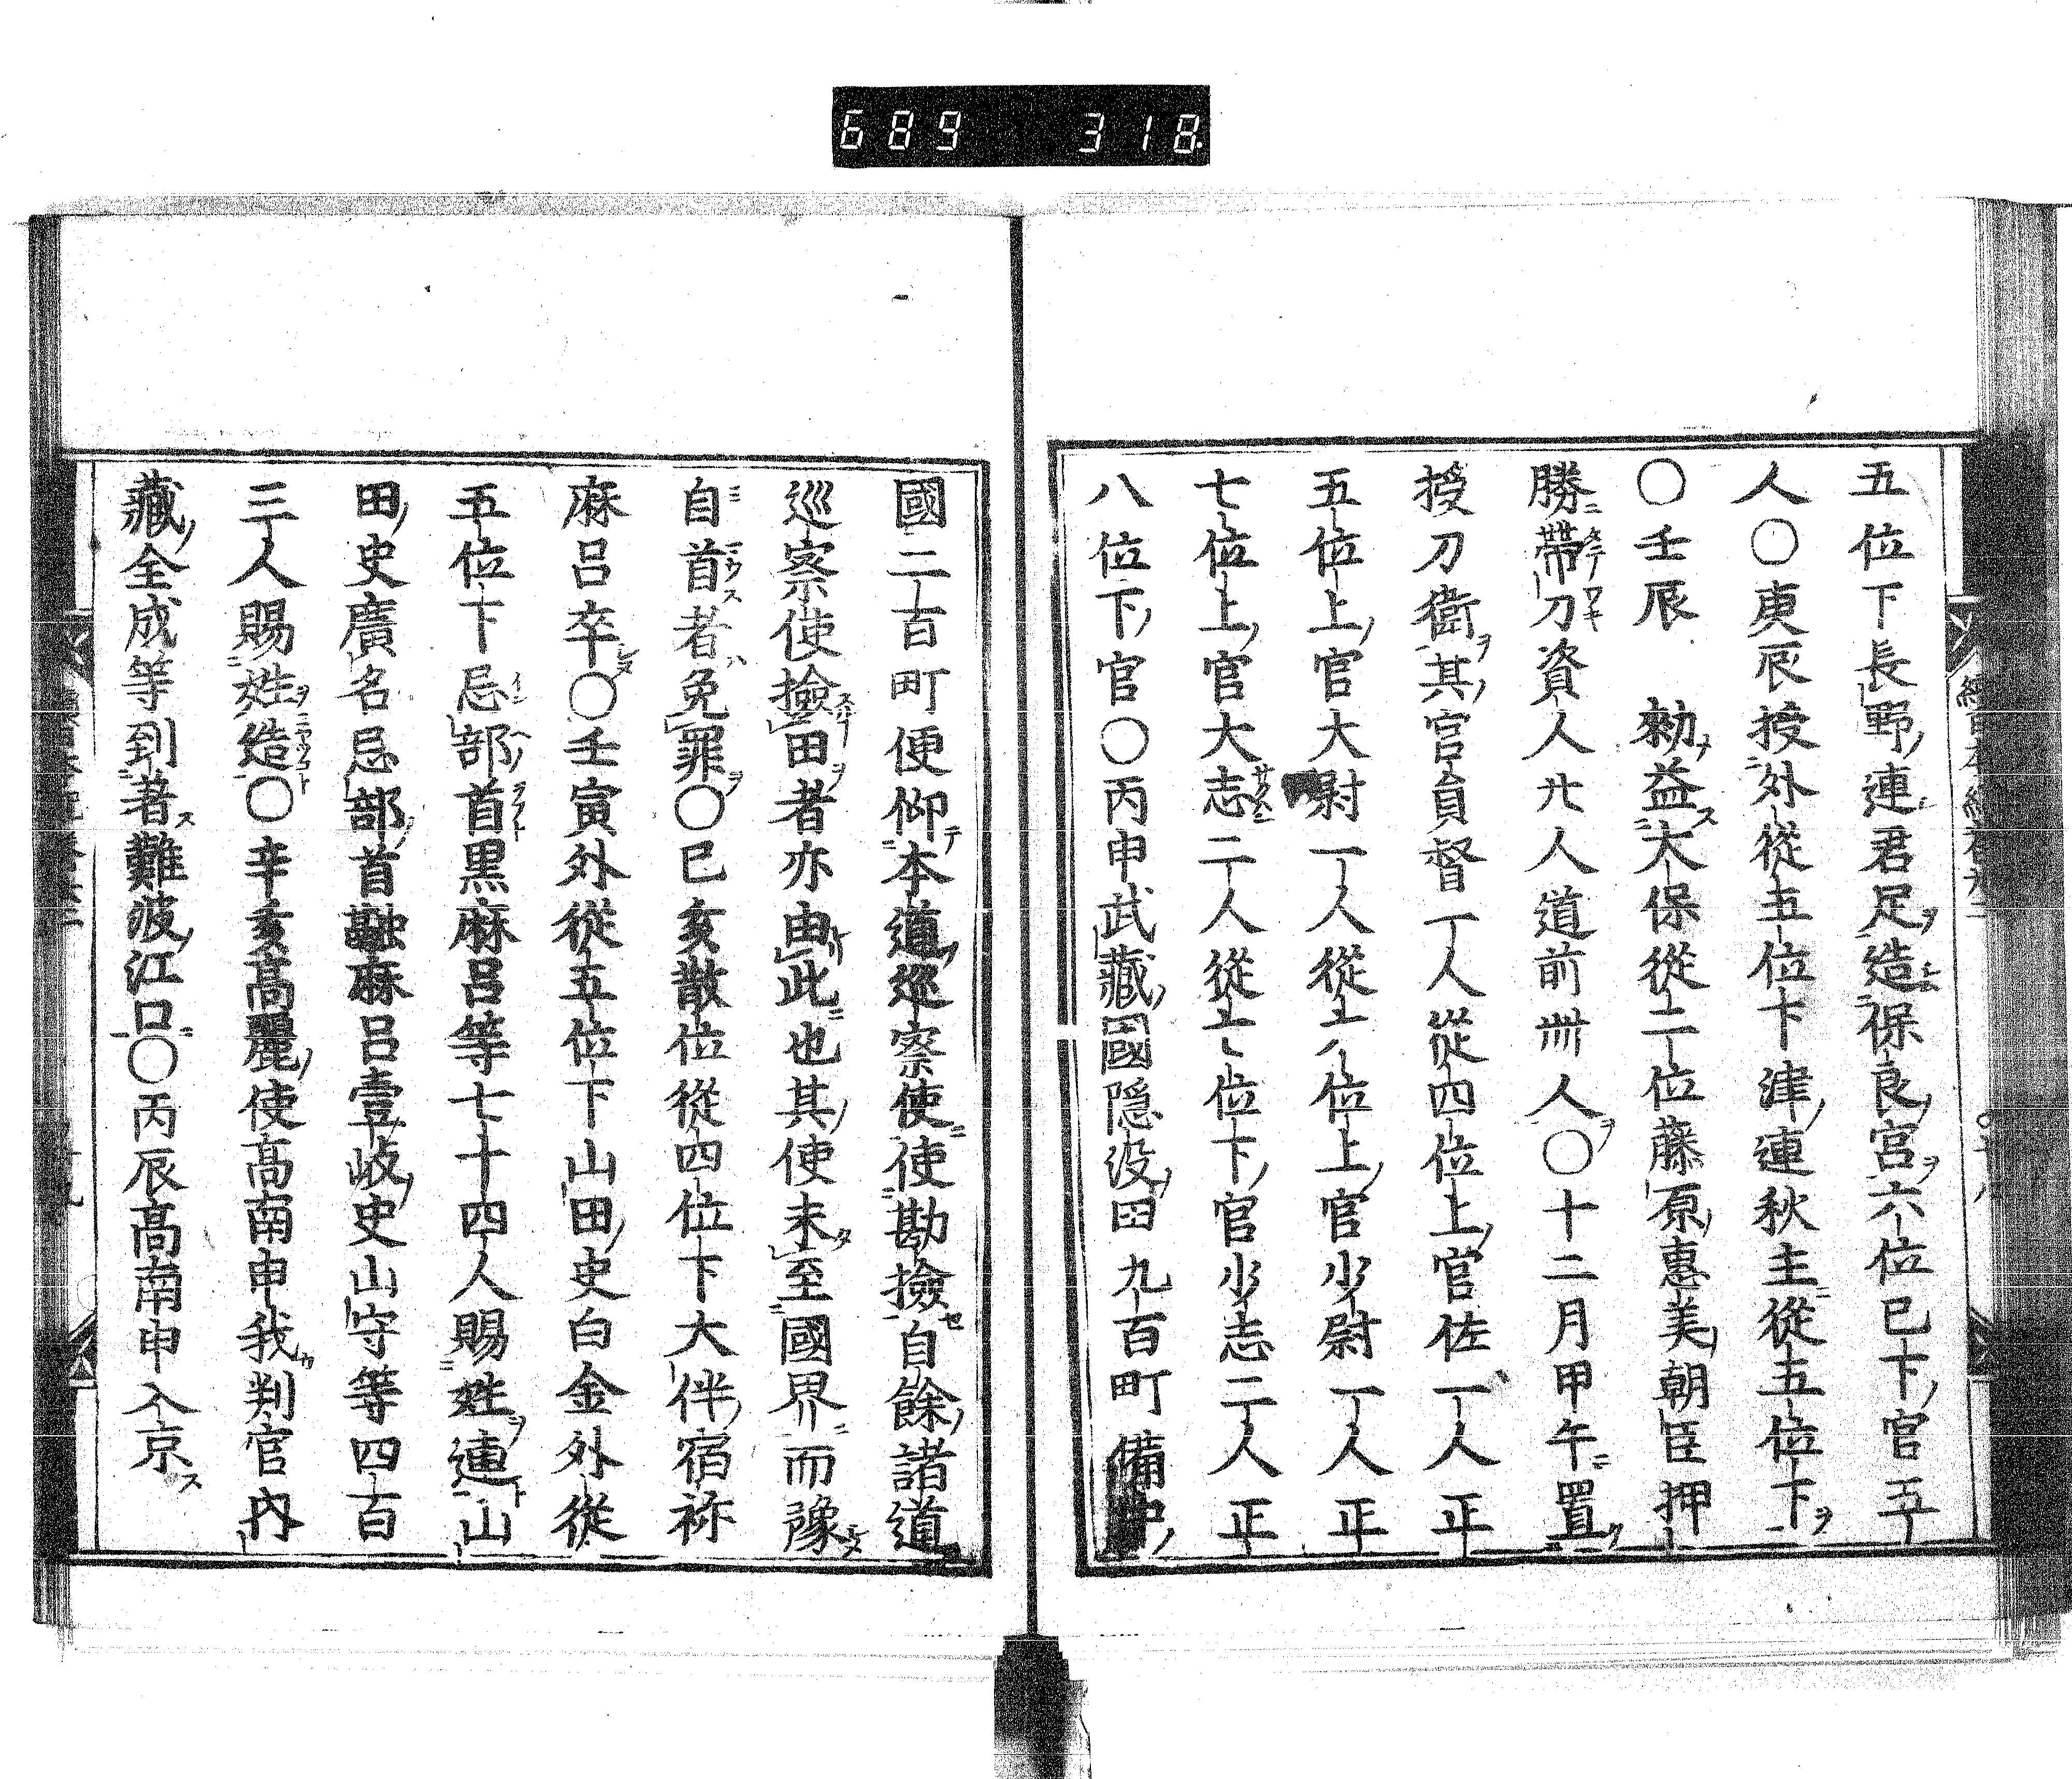 689 318
五位下長野連君足造保良宮六位已下官五
人〇庚辰授外從五位下津連秋主從五位下
〇壬辰 勑益大保從二位藤原惠美朝臣押
勝帶刀資人廿人道前卌人〇十二月甲午置
授刀衛其官員督一人從四位上官佐一人正
五位上官大尉一人從六位上官少尉一人正
七位上官大志二人從七位下官少志二人正
八位下官〇丙申武藏國隱没田九百町備中
國二百町便仰本道巡察使使勘撿自餘諸道
巡察使撿田者亦由此也其使未至國界而豫
自首者免罪〇己亥散位從四位下大伴宿祢
麻呂卒〇壬寅外從五位下山田史白金外從
五位下忌部首黒麻呂等七十四人賜姓連山
田史廣名忌部首融麻呂壹岐史山守等四百
三人賜姓造〇辛亥髙麗使髙南申我判官内
藏全成等到著難波江口〇丙辰髙南申入京